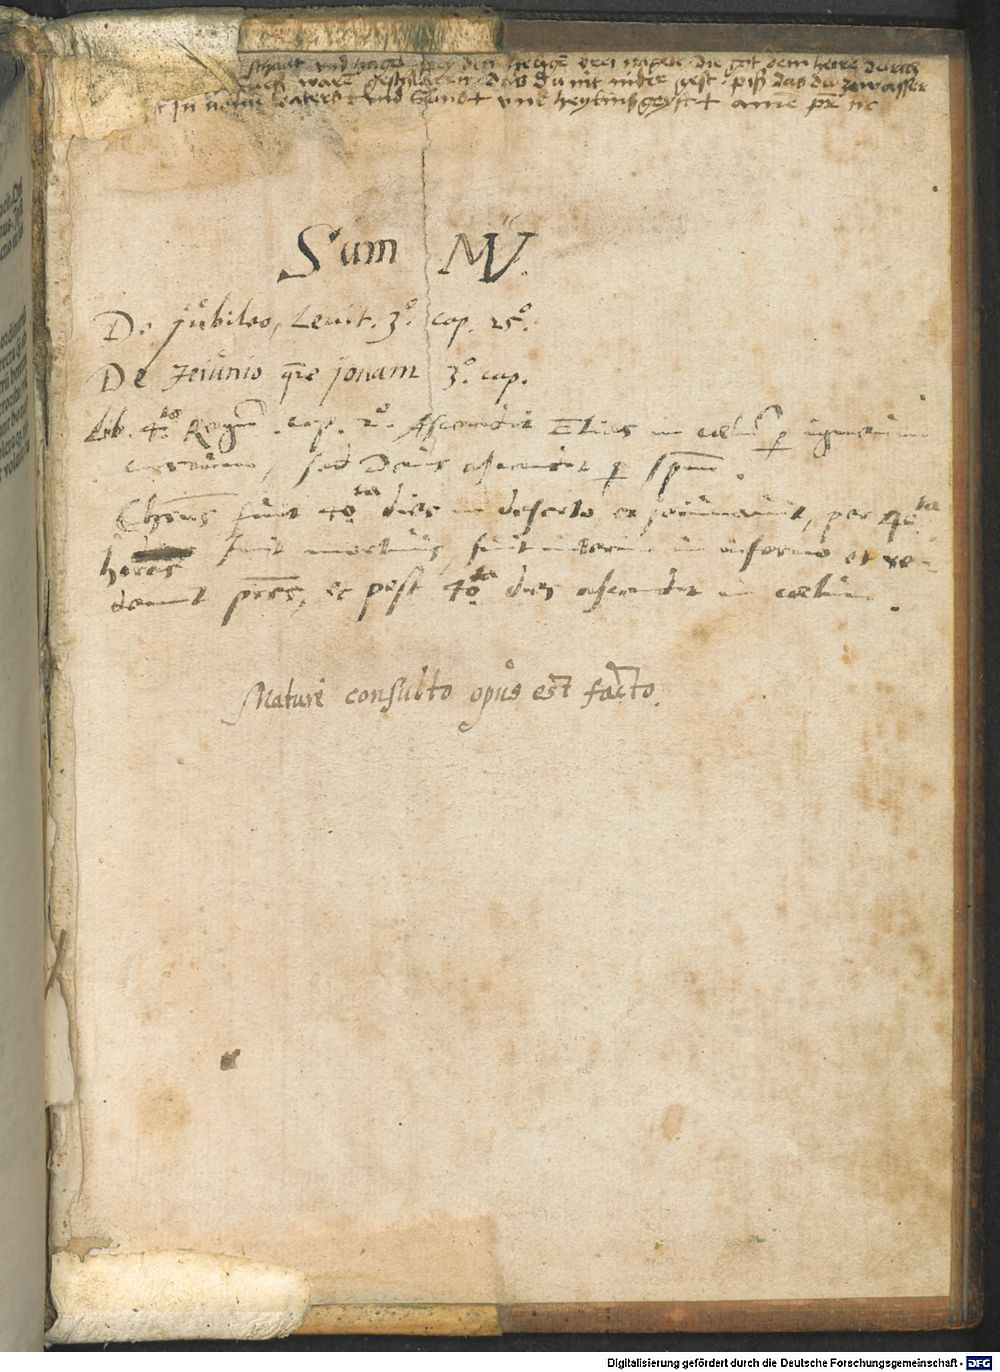 schaur vnd hagel pey den heilige drei nagele die got dem herre durch
war geschlagen das du nit nider gest piß das du zu wasser
† In nome vaters † und Sunst † vnd heyling geyst † ame pr nr
Sum MV.
De jubileo, Levit. 3º. cap. 25º.
De Jeiunio qre jonam 3º. cap.
Lib. 4to. Regum. cap. 2º. Ascendit Elias in cælum p igneum
currum, sed Domus ascendit p spm.
Chrus fuit 40ta dies in deserto et jeiunavit, per 40ta
horas fuit mortuus, fuit interim in inferno et re-
demit pres, et post 40ta dies ascendit in cælum.
Mature consulto opus est facto.
Digitalisierung gefördert durch die Deutsche Forschungsgemeinschaft - DFG